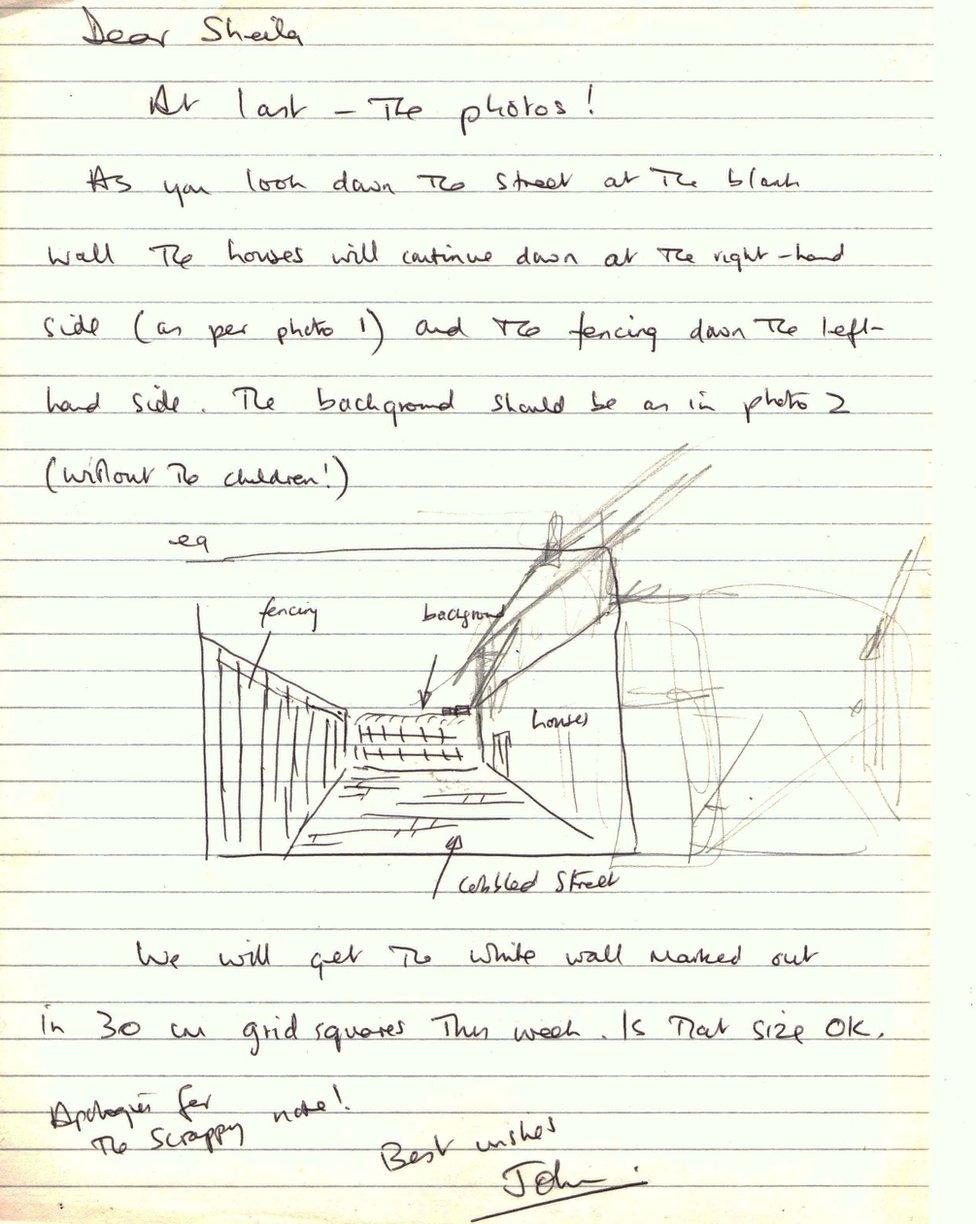 Dear Sheila
At last - The photos!
As you look down The street at The blank
wall The houses will continue down at The right-hand
side (as per photo 1) and The fencing down The left-
hand side. The background should be as in photo 2
(without The children!)
eg
fencing
background
houses
cobbled street
We will get The white wall marked out
in 30 cm grid squares This week. Is That size OK.
Apologies for
The scrappy note!
Best wishes
John